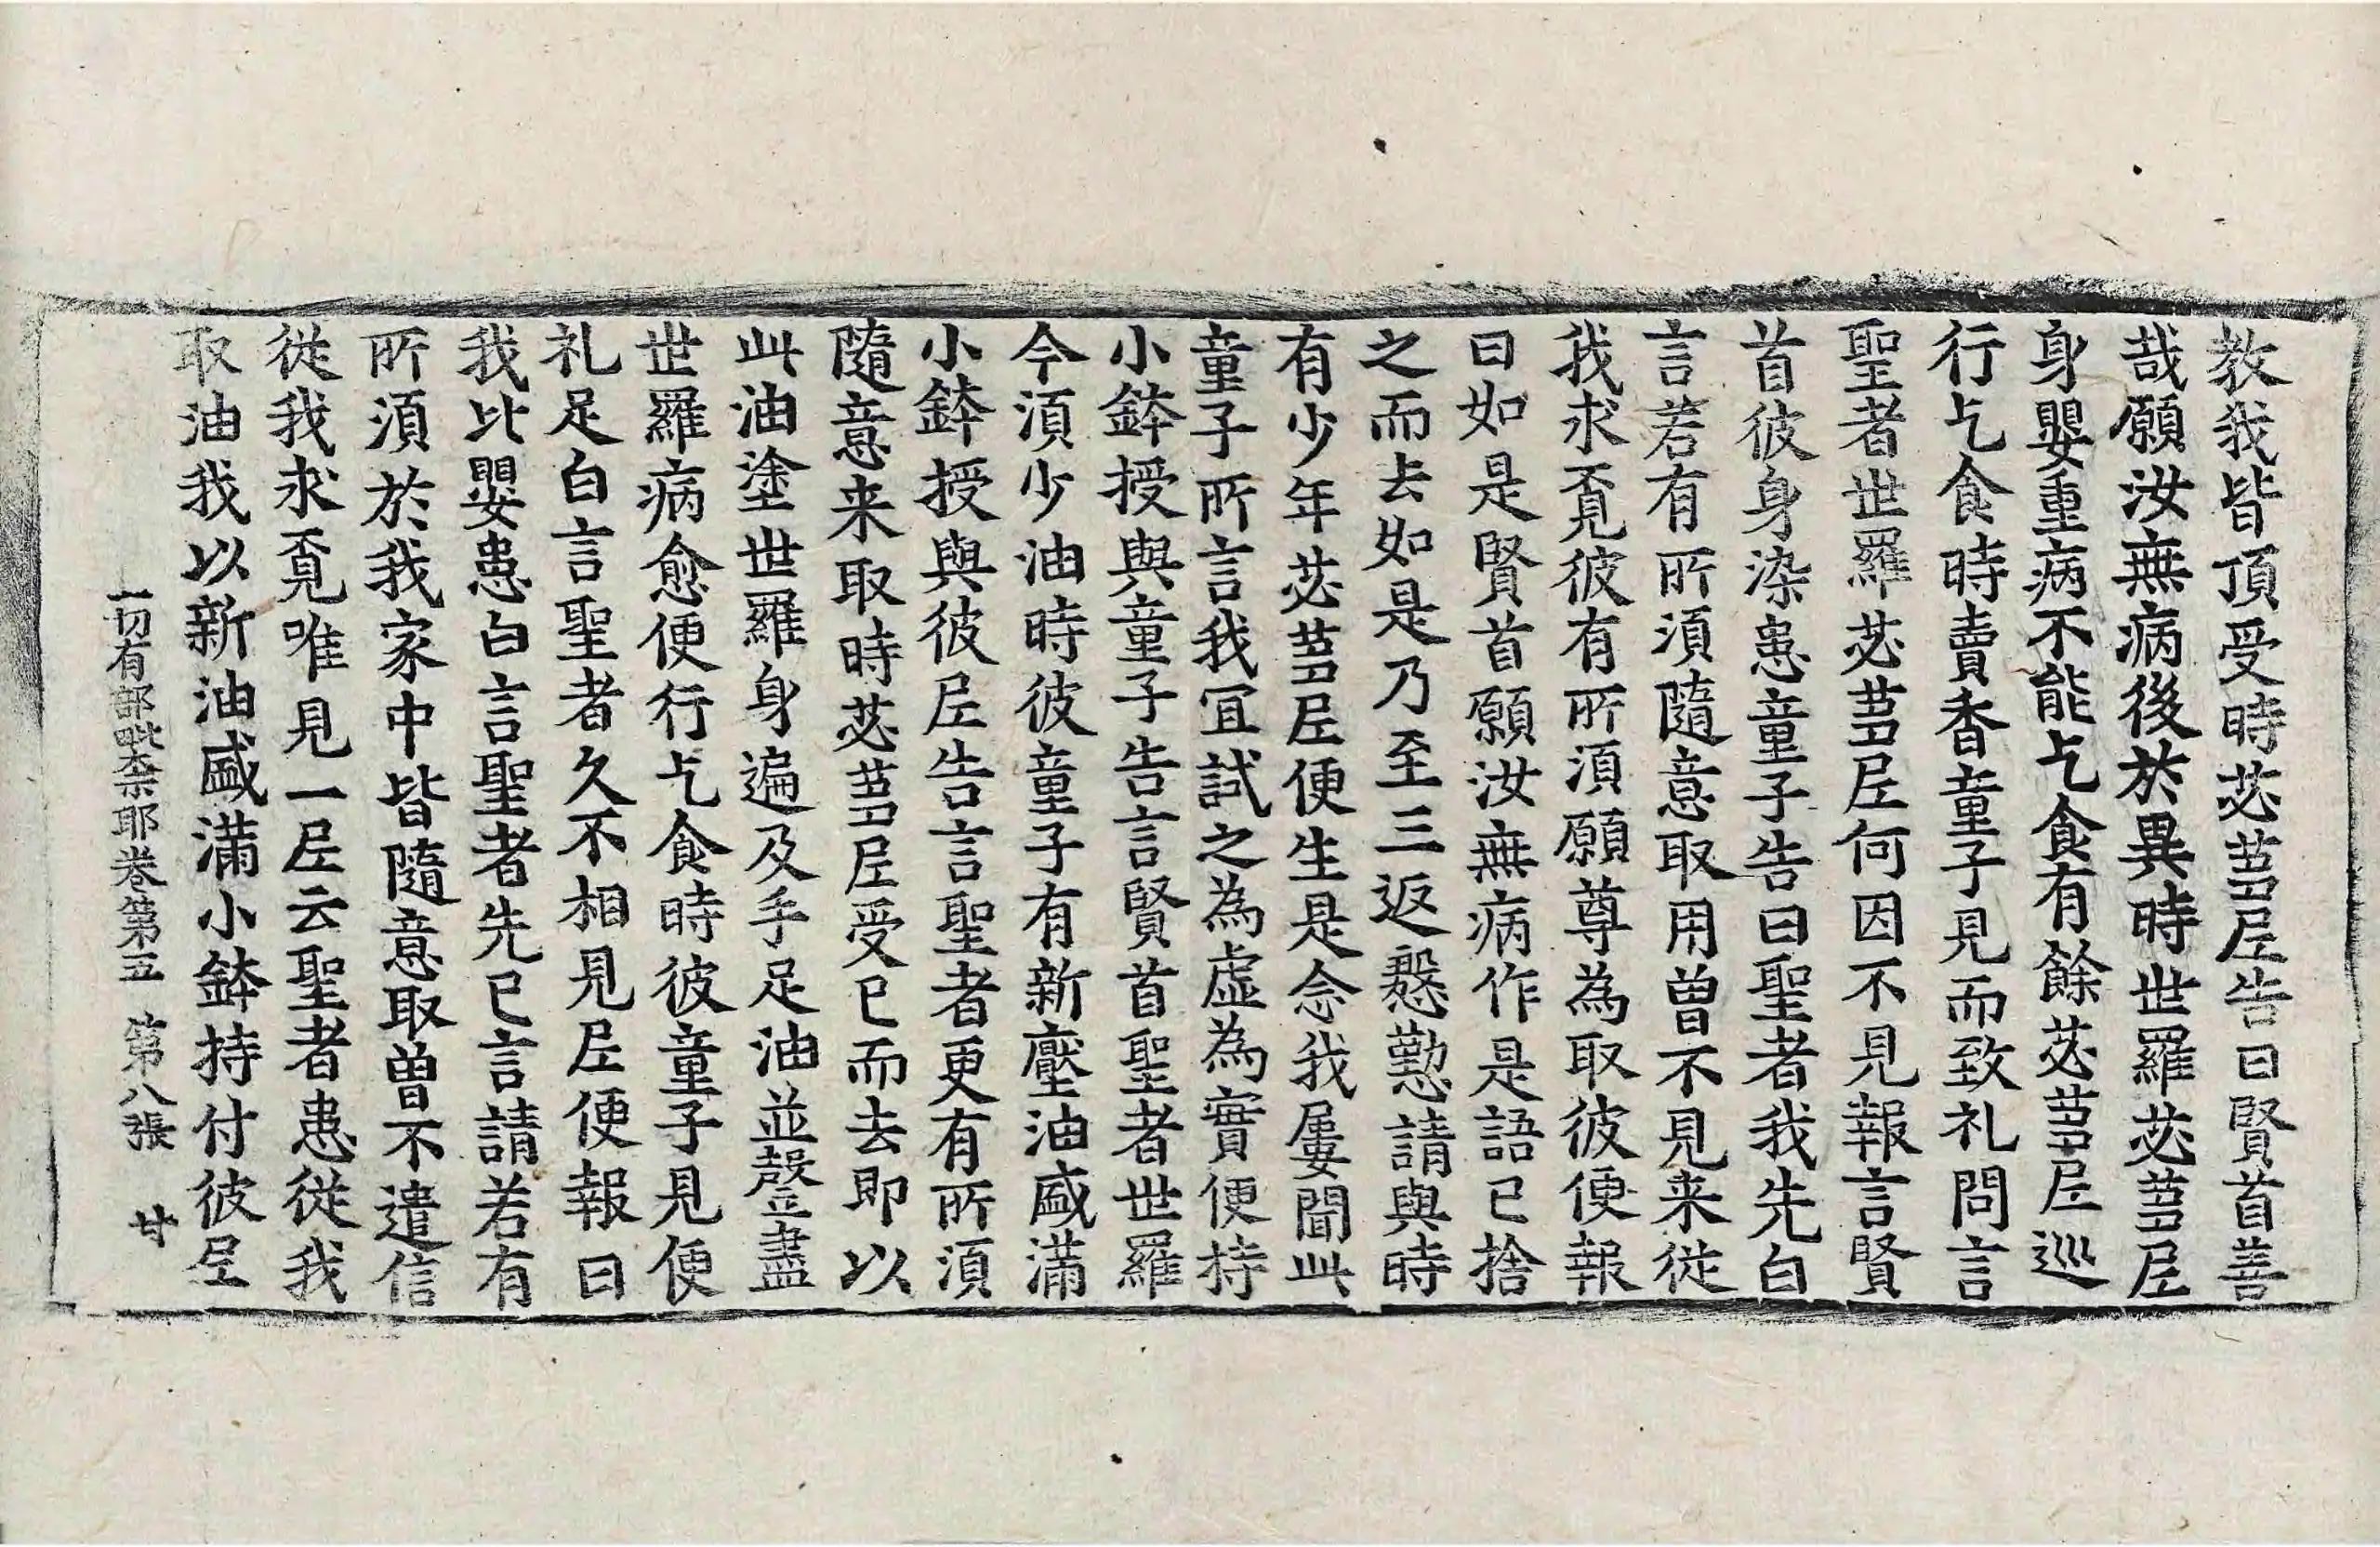 教我皆頂受時苾蒭尼告曰賢首善
哉願汝無病後於異時世羅苾蒭尼
身嬰重病不能乞食有餘苾蒭尼巡
行乞食時賣香童子見而致礼問言
聖者世羅苾蒭尼何因不見報言賢
首彼身染患童子告曰聖者我先白
言若有所湏隨意取用曾不見来從
我求覔彼有所湏願尊為取彼便報
曰如是賢首願汝無病作是語已捨
之而去如是乃至三返慇懃請與時
有少年苾蒭尼便生是念我屢聞此
童子所言我冝試之為虛為實便持
小鉢授與童子告言賢首聖者世羅
今湏少油時彼童子有新壓油盛滿
小鉢授與彼尼告言聖者更有所湏
隨意来取時苾蒭尼受已而去即以
此油塗世羅身遍及手足油並罄盡
世羅病愈便行乞食時彼童子見便
礼足白言聖者久不相見尼便報曰
我比嬰患白言聖者先已言請若有
所湏於我家中皆隨意取曾不遣信
從我求覔唯見一尼云聖者患從我
取油我以新油盛滿小鉢持付彼尼
一切有部毗奈耶卷第五　第八張　甘